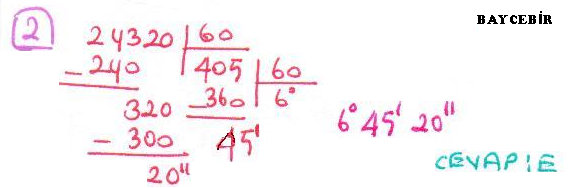 BAYCEBİR
2 24320 | 60
- 240 405 | 60
320 - 360 6°
- 300 45' 6° 45' 20"
20"
CEVAP:E